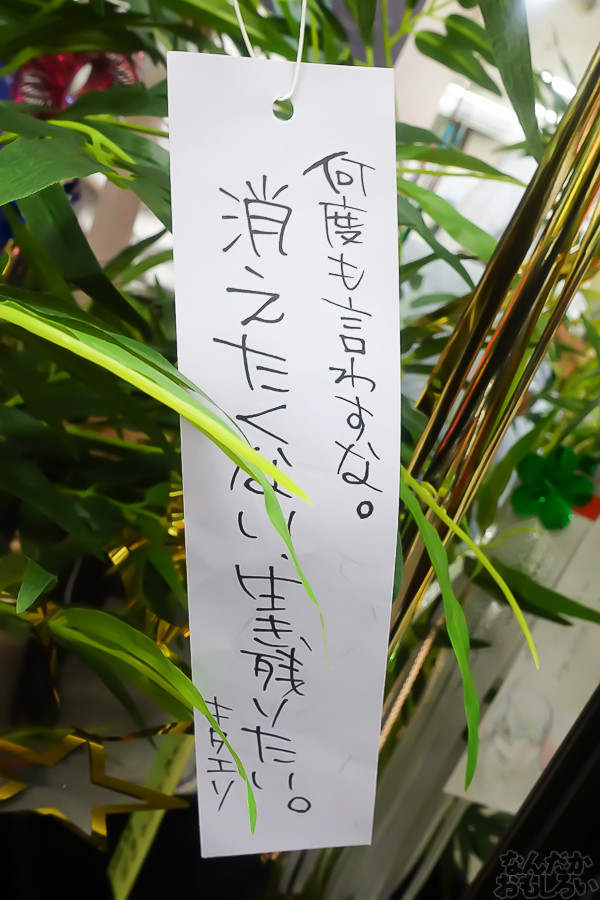 何度も言わすな。
消えたくない、生き残りたい。
キタエリ
なんだか
おもしろい